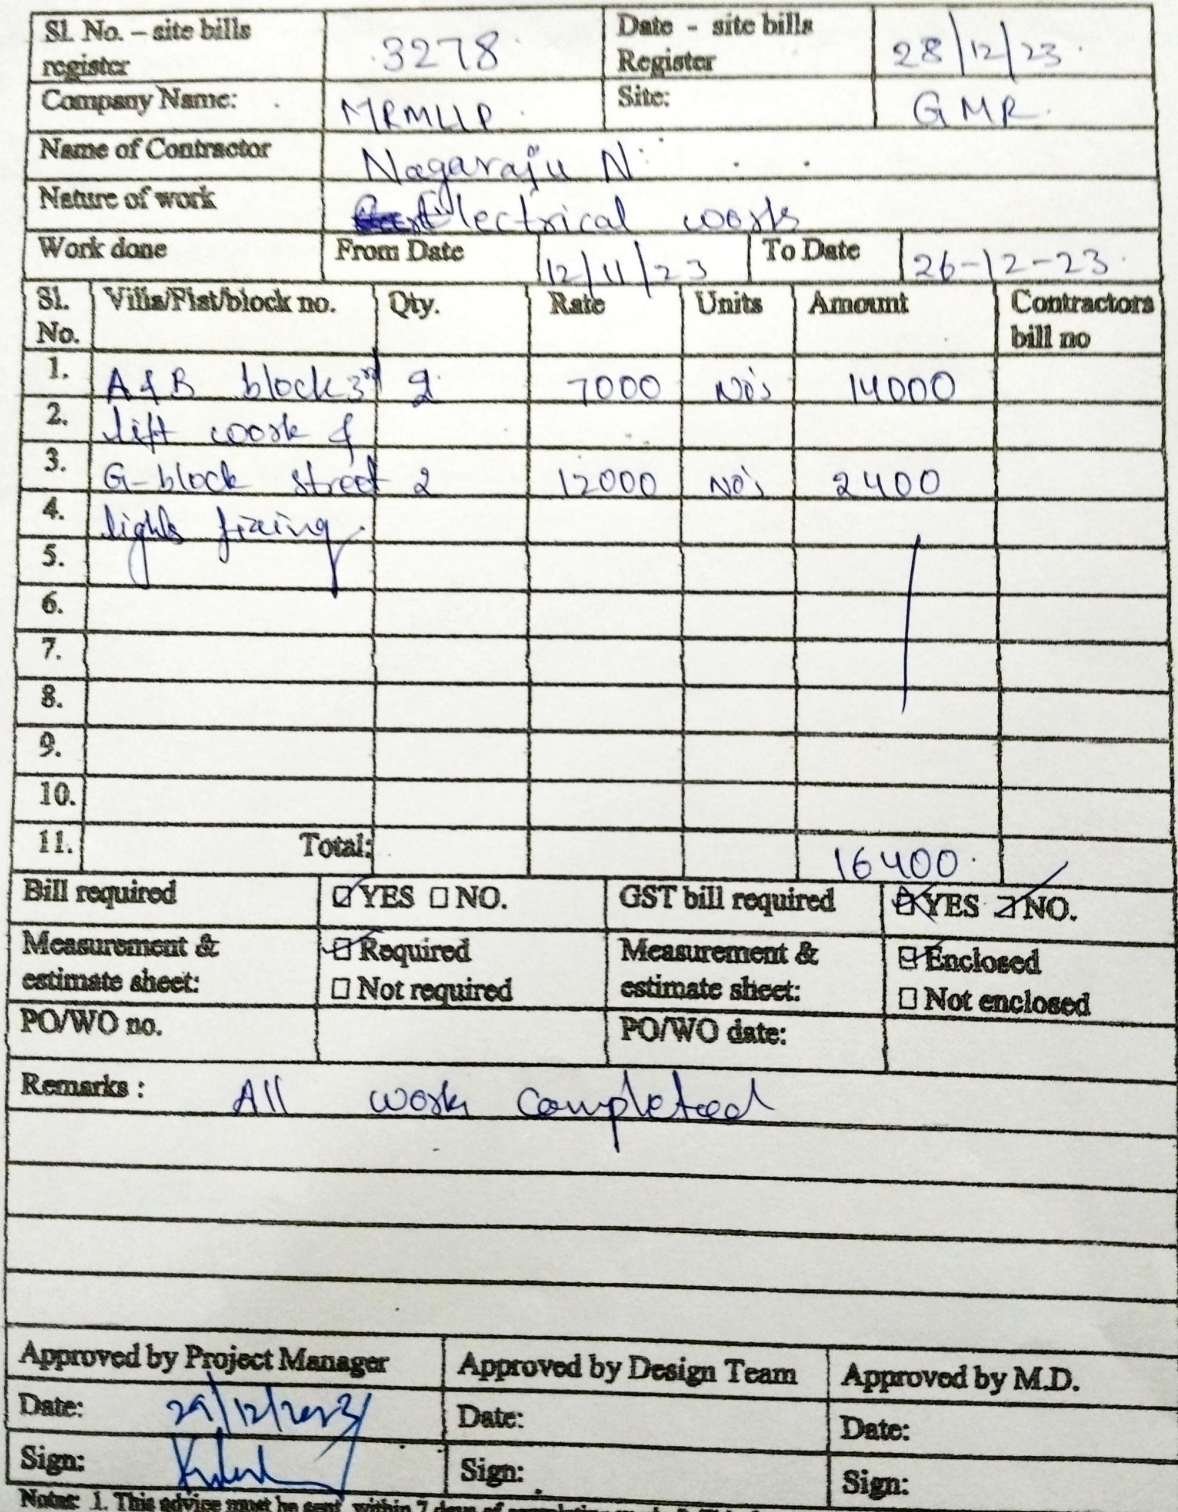 Sl. No. – site bills register 3278 Date - site bills Register 28/12/23
Company Name: MRMLLP Site: GMR
Name of Contractor Nagaraju N
Nature of work Electrical work
Work done From Date 12/11/23 To Date 26-12-23
Sl. No. Villa/Flat/block no. Qty. Rate Units Amount Contractors bill no
1. A & B block 3rd 2 7000 No's 14000
2. lift work &
3. G-block street 2 12000 No's 2400
4. lights fixing
5.
6.
7.
8.
9.
10.
11. Total: 16400
Bill required YES NO. GST bill required YES NO.
Measurement & estimate sheet: Required Not required Measurement & estimate sheet: Enclosed Not enclosed
PO/WO no. PO/WO date:
Remarks : All work completed
Approved by Project Manager Approved by Design Team Approved by M.D.
Date: 29/12/2023 Date: Date:
Sign: Sign: Sign:
Notes: 1. This advice must be sent within 7 days of